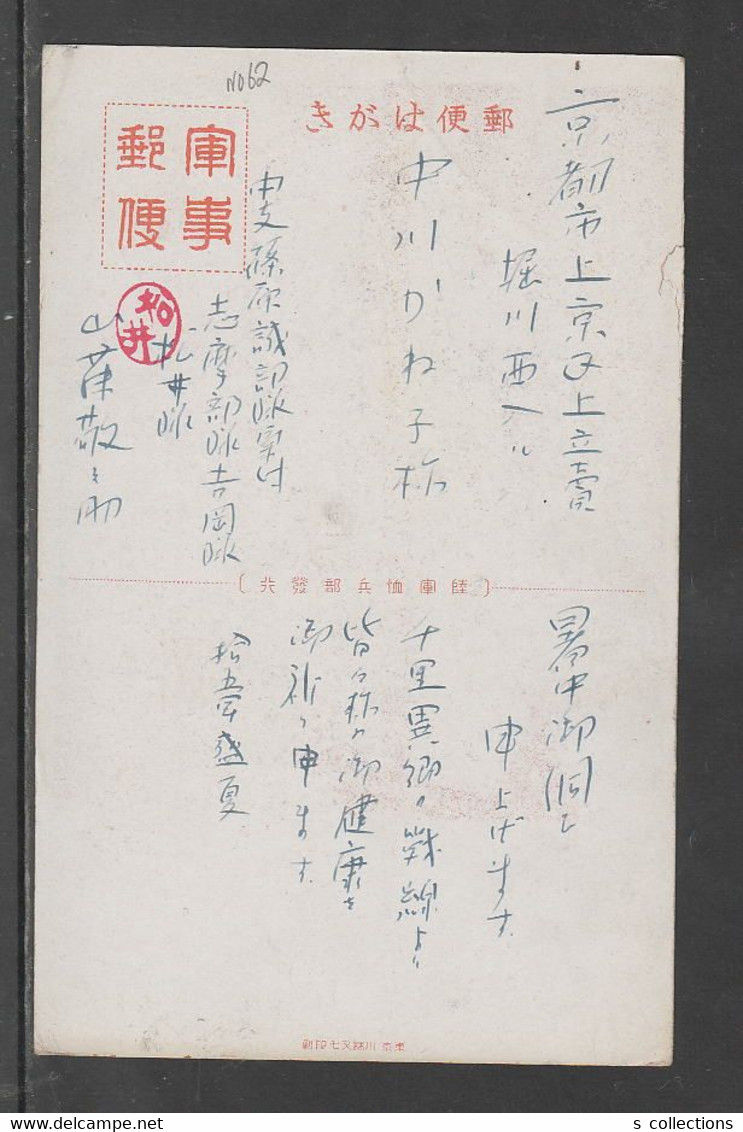 NO62
郵便はがき
軍事
郵便
京都市上京区上立賣
堀川西入ル
中川かね子様
中支篠原誠部隊気付
志摩部隊吉岡隊
松井隊
松井
敬之助
〔陸軍恤兵部發行〕
暑中御伺ヒ
申上げます
千里異郷ノ戦線より
皆々様の御健康を
御祈り申ます
拾五年盛夏
東京 川瀬又七印刷
s collections